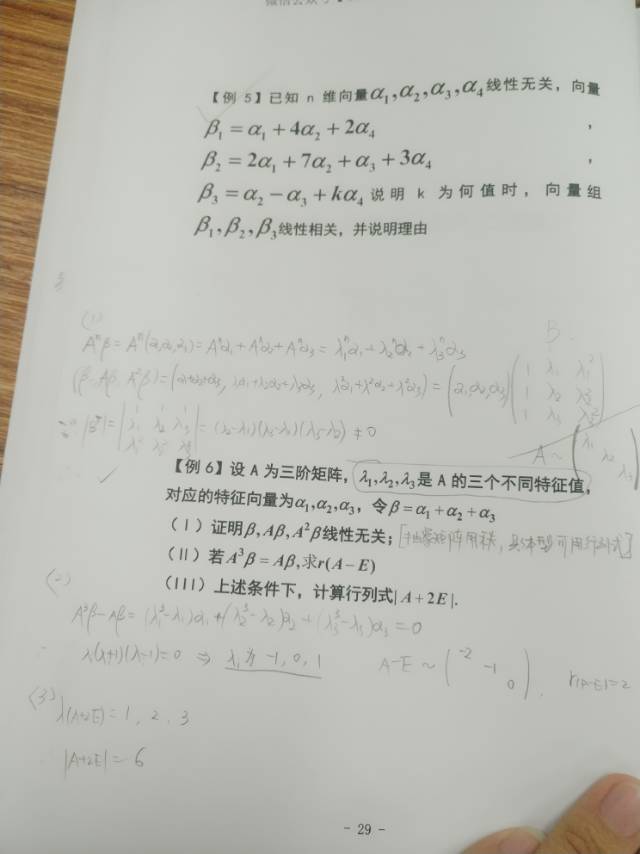 【例 5】已知 n 维向量α₁,α₂,α₃,α₄线性无关，向量
β₁=α₁+4α₂+2α₄ ，
β₂=2α₁+7α₂+α₃+3α₄ ，
β₃=α₂-α₃+kα₄说明 k 为何值时，向量组
β₁,β₂,β₃线性相关，并说明理由
(1)
B
Aⁿβ=Aⁿ(α₁,α₂,α₃)=Aⁿα₁+Aⁿα₂+Aⁿα₃=λ₁ⁿα₁+λ₂ⁿα₂+λ₃ⁿα₃
(β, Aβ, A²β)=(α₁+α₂+α₃, λ₁α₁+λ₂α₂+λ₃α₃, λ₁²α₁+λ₂²α₂+λ₃²α₃)=(α₁,α₂,α₃)(1 λ₁ λ₁²
1 λ₂ λ₂²
1 λ₃ λ₃²)
|Bᵀ|=|1 1 1
λ₁ λ₂ λ₃
λ₁² λ₂² λ₃²|=(λ₂-λ₁)(λ₃-λ₁)(λ₃-λ₂)≠0
A~(λ₁
λ₂
λ₃)
【例 6】设 A 为三阶矩阵，λ₁,λ₂,λ₃是 A 的三个不同特征值，
对应的特征向量为α₁,α₂,α₃，令β=α₁+α₂+α₃
(Ⅰ) 证明β,Aβ,A²β线性无关；[抽象矩阵用秩，具体型可用行列式]
(II) 若A³β=Aβ,求r(A-E)
(III) 上述条件下，计算行列式|A+2E|.
(2)
A³β-Aβ=(λ₁³-λ₁)α₁+(λ₂³-λ₂)α₂+(λ₃³-λ₃)α₃=0
λ(λ+1)(λ-1)=0 ⇒ λᵢ为 -1, 0, 1 A-E~(-2
-1
0). r(A-E)=2
(3)
λ(A+2E)=1, 2, 3
|A+2E|=6
- 29 -